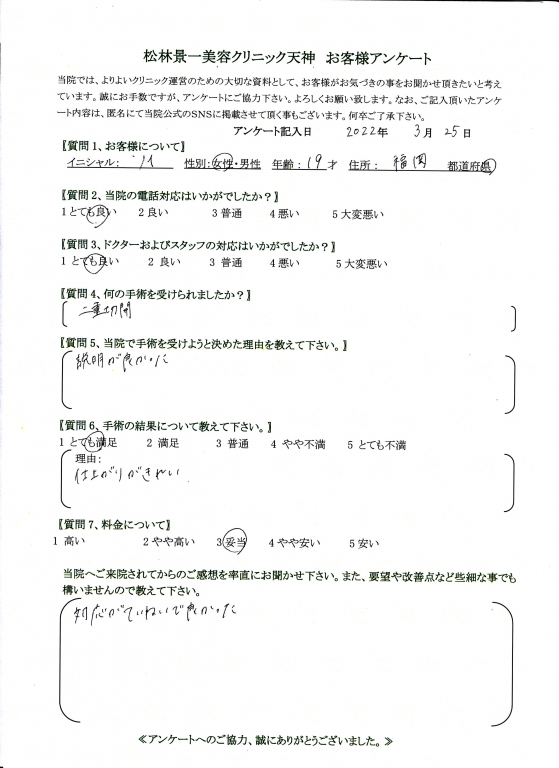 松林景一美容クリニック天神 お客様アンケート
当院では、よりよいクリニック運営のための大切な資料として、お客様がお気づきの事をお聞かせ頂きたいと考え
ています。誠にお手数ですが、アンケートにご協力下さい。よろしくお願い致します。なお、ご記入頂いたアンケ
ート内容は、匿名にて当院公式のSNSに掲載させて頂く事もございます。何卒ご了承下さい。
アンケート記入日 2022年 3月 25日
【質問1、お客様について】
イニシャル: 性別:女性・男性 年齢:19才 住所: 福岡 都道府県
【質問2、当院の電話対応はいかがでしたか?】
1とても良い 2良い 3普通 4悪い 5大変悪い
【質問3、ドクターおよびスタッフの対応はいかがでしたか?】
1とても良い 2良い 3普通 4悪い 5大変悪い
【質問4、何の手術を受けられましたか?】
二重切開
【質問5、当院で手術を受けようと決めた理由を教えて下さい。】
説明が良かった
【質問6、手術の結果について教えて下さい。】
1とても満足 2満足 3普通 4やや不満 5とても不満
理由:
仕上がりがきれい
【質問7、料金について】
1高い 2やや高い 3妥当 4やや安い 5安い
当院へご来院されてからのご感想を率直にお聞かせ下さい。また、要望や改善点など些細な事でも
構いませんので教えて下さい。
対応がていねいで良かった
≪アンケートへのご協力、誠にありがとうございました。≫